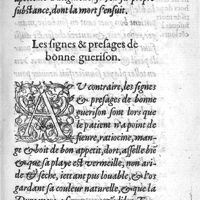 substance, dont la mort s'ensuit.
Les signes & presages de
bonne guerison.
AU contraire, les signes
& presages de bonne
guerison sont lors que
le patient n'a point de
fieure, ratiocine, man-
ge & boit de bon appetit, dort, asselle biē
& que sa playe est vermeille, non ari-
de & seche, iettant pus louable, & l'os
gardant sa couleur naturelle, & que la